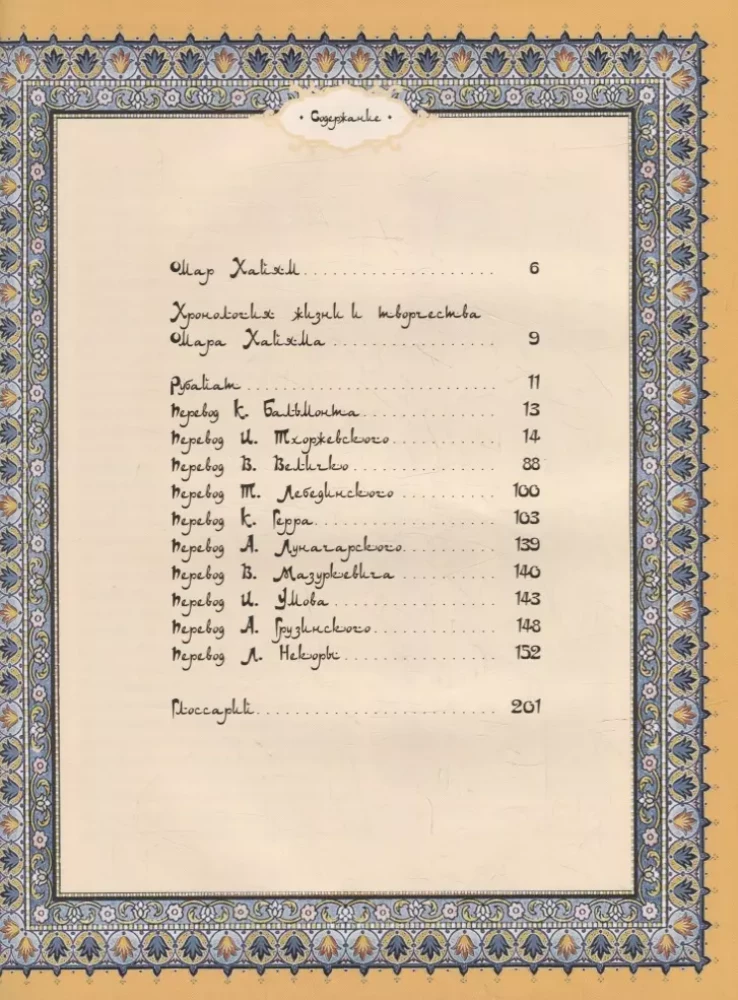 • Содержание •
Омар Хайям.................... 6
Хронология жизни и творчества
Омара Хайяма................. 9
Рубайат.......................... 11
Перевод К. Бальмонта.............. 13
Перевод И. Тхоржевского........... 14
Перевод В. Величко............... 88
Перевод Т. Лебединского.......... 100
Перевод К. Герра................... 103
Перевод А. Луначарского.......... 139
Перевод В. Мазуркевича........... 140
Перевод И. Умова................. 143
Перевод А. Грузинского............. 148
Перевод Л. Некоры................ 152
Глоссарий......................... 201